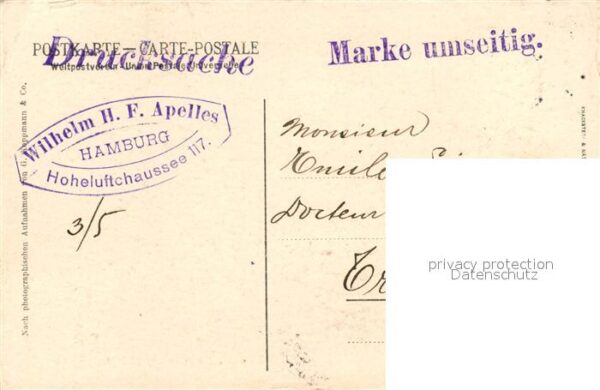 POSTKARTE — CARTE-POSTALE
Weltpostverein - Union Postale Universelle
Drucksache
Marke umseitig.
Wilhelm H. F. Apelles
HAMBURG
Hoheluftchaussee 117.
3/5
Monsieur
Emile
Docteur
Nach photographischen Aufnahmen von G. Koppmann & Co.
privacy protection
Datenschutz